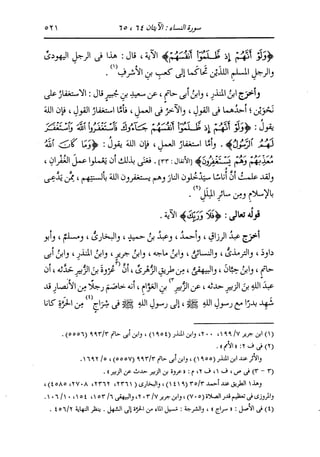 سورة النساء : الآيتان ٦٤ ، ٦٥ ٥٢١
﴿وَلَوْ أَنَّهُمْ إِذ ظَّلَمُوٓا۟ أَنفُسَهُمْ﴾ الآية ، قال : هذا فى الرجلِ اليهودىِّ
والرجلِ المسلمِ اللذَيْن تحاكما إلى كعبِ بنِ الأشرفِ (١) .
وأخرَج ابنُ المنذرِ ، وابنُ أبى حاتمٍ ، عن سعيدِ بنِ جُبيرٍ قال : الاستغفارُ على
نَحْوَينِ ؛ أحدُهما فى القولِ ، والآخرُ فى العملِ ، فأمَّا استغفارُ القولِ ، فإن اللهَ
يقولُ : ﴿وَلَوْ أَنَّهُمْ إِذ ظَّلَمُوٓا۟ أَنفُسَهُمْ جَآءُوكَ فَٱسْتَغْفَرُوا۟ ٱللَّهَ وَٱسْتَغْفَرَ
لَهُمُ ٱلرَّسُولُ﴾ . وأما استغفارُ العملِ ، فإن اللهَ يقولُ : ﴿وَمَا كَانَ ٱللَّهُ
مُعَذِّبَهُمْ وَهُمْ يَسْتَغْفِرُونَ﴾ [الأنفال : ٣٣] . فعَنى بذلك أن يعمَلوا عملَ الغُفرانِ ،
ولقد علمتُ أنَّ أُناسًا سيَدخُلون النارَ وهم يستغفرون اللهَ بألسنتِهم ، ممن يَدَّعِى
بالإسلامِ ومن سائرِ المللِ (٢) .
قولُه تعالى : ﴿فَلَا وَرَبِّكَ﴾ الآية .
أخرَج عبدُ الرزاقِ ، وأحمدُ ، وعبدُ بنُ حميدٍ ، والبخارىُّ ، ومسلمٌ ، وأبو
داودَ ، والترمذىُّ ، والنسائىُّ ، وابنُ ماجه ، وابنُ جريرٍ ، وابنُ المنذرِ ، وابنُ أبى
حاتمٍ ، وابنُ حِبَّانَ ، والبيهقىُّ ، من طريقِ الزُّهرىِّ ، أنَّ (٣) عُروةَ بنَ الزُّبيرِ حدَّثه ، أن
عبدَ اللهِ بنَ الزبيرِ حدثه ، عن الزُّبيرِ (٣) بنِ العَوَّامِ ، أنه خاصَم رجلًا من الأنصارِ قد
شَهِد بدرًا مع رسولِ اللهِ ﷺ ، إلى رسولِ اللهِ ﷺ فى شِراجٍ (٤) من الحَرَّةِ كانا
(١) ابن جرير ٧/ ١٩٩، ٢٠٠، وابن المنذر (١٩٥٤) ، وابن أبى حاتم ٣/ ٩٩٣ (٥٥٥٦) .
(٢) فى ف ٢ : « الأمم » .
والأثر عند ابن المنذر (١٩٥٥) ، وابن أبى حاتم ٣/ ٩٩٣ (٥٥٥٧) ، ٥/ ١٦٩٢.
(٣ - ٣) فى ص ، ف ١ ، ف ٢ ، م : « عروة بن الزبير حدث عن الزبير » .
وهذا الطريق عند أحمد ٣/ ٣٥ (١٤١٩) ، والبخارى (٢٣٦١ ، ٢٣٦٢ ، ٢٧٠٨ ، ٤٥٨٥) ،
والمروزى فى تعظيم قدر الصلاة (٧٠٥) ، وابن جرير ٧/ ٢٠٣ ، والبيهقى ٦/ ١٥٣ ، ١٥٤ ، ١٠/ ١٠٦.
(٤) فى الأصل : « سراج » ، والشرجة : مسيل الماء من الحرة إلى السهل . ينظر النهاية ٢/ ٤٥٦.